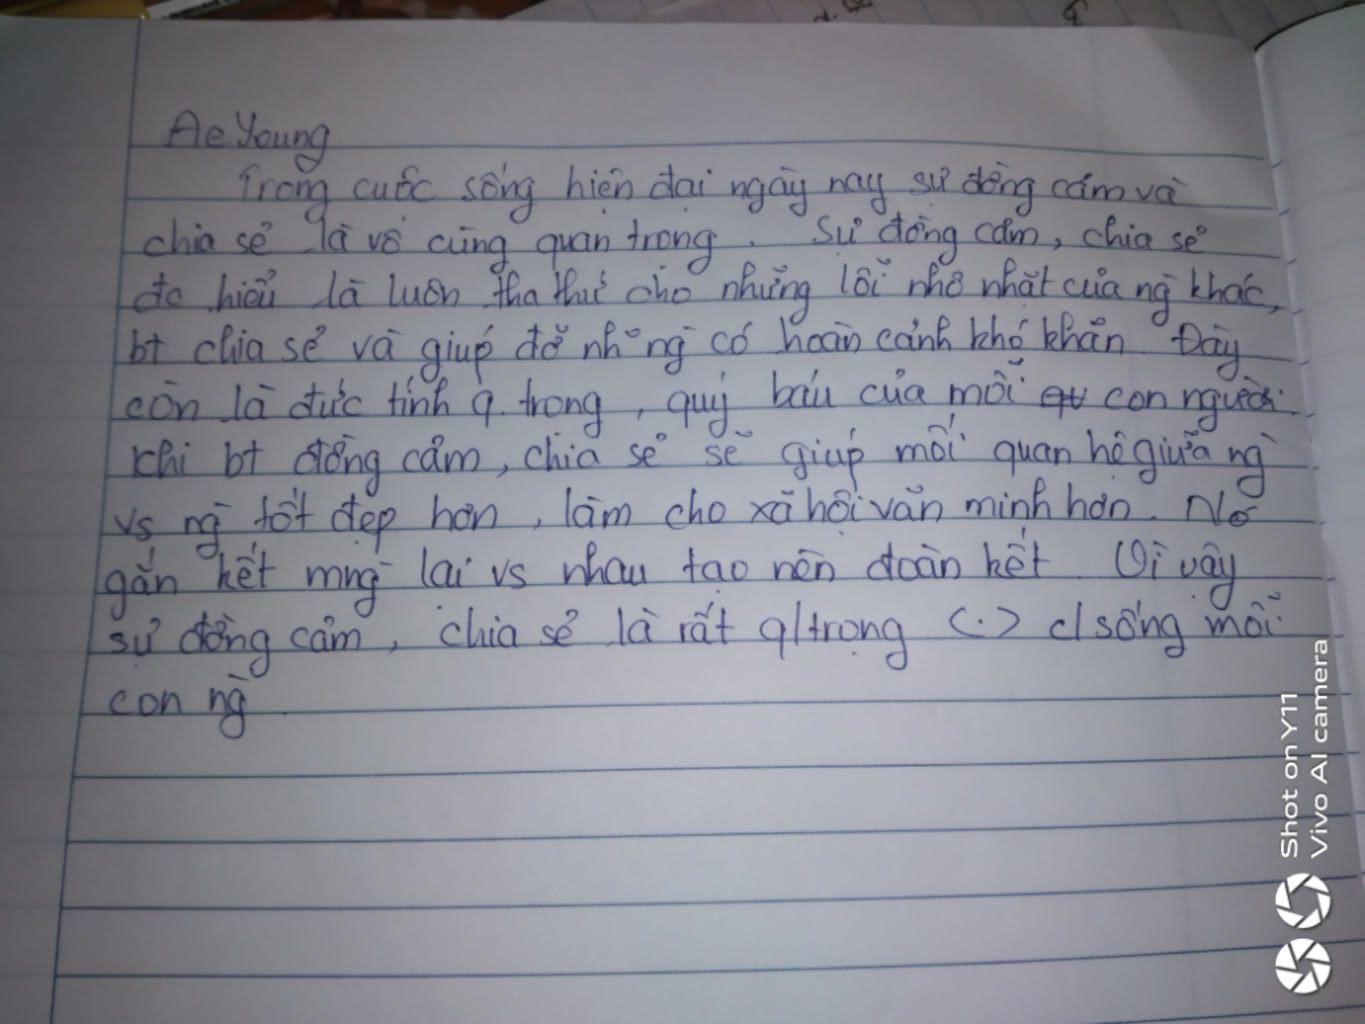 Ae Young
Trong cuộc sống hiện đại ngày nay sự đồng cảm và
chia sẻ là vô cùng quan trọng. Sự đồng cảm, chia sẻ
đc hiểu là luôn tha thứ cho những lỗi nhỏ nhặt của ng khác,
bt chia sẻ và giúp đỡ nh~ng có hoàn cảnh khó khăn. Đây
còn là đức tính q.trọng, quý báu của mỗi con người.
khi bt đồng cảm, chia sẻ sẽ giúp mối quan hệ giữa ng̀
vs ng̀ tốt đẹp hơn, làm cho xã hội văn minh hơn. Nó
gắn kết mng̀ lại vs nhau tạo nên đoàn kết. Vì vậy
sự đồng cảm, chia sẻ là rất q/trọng (.) c/sống mỗi
con ng̀.
Shot on Y11
Vivo AI camera